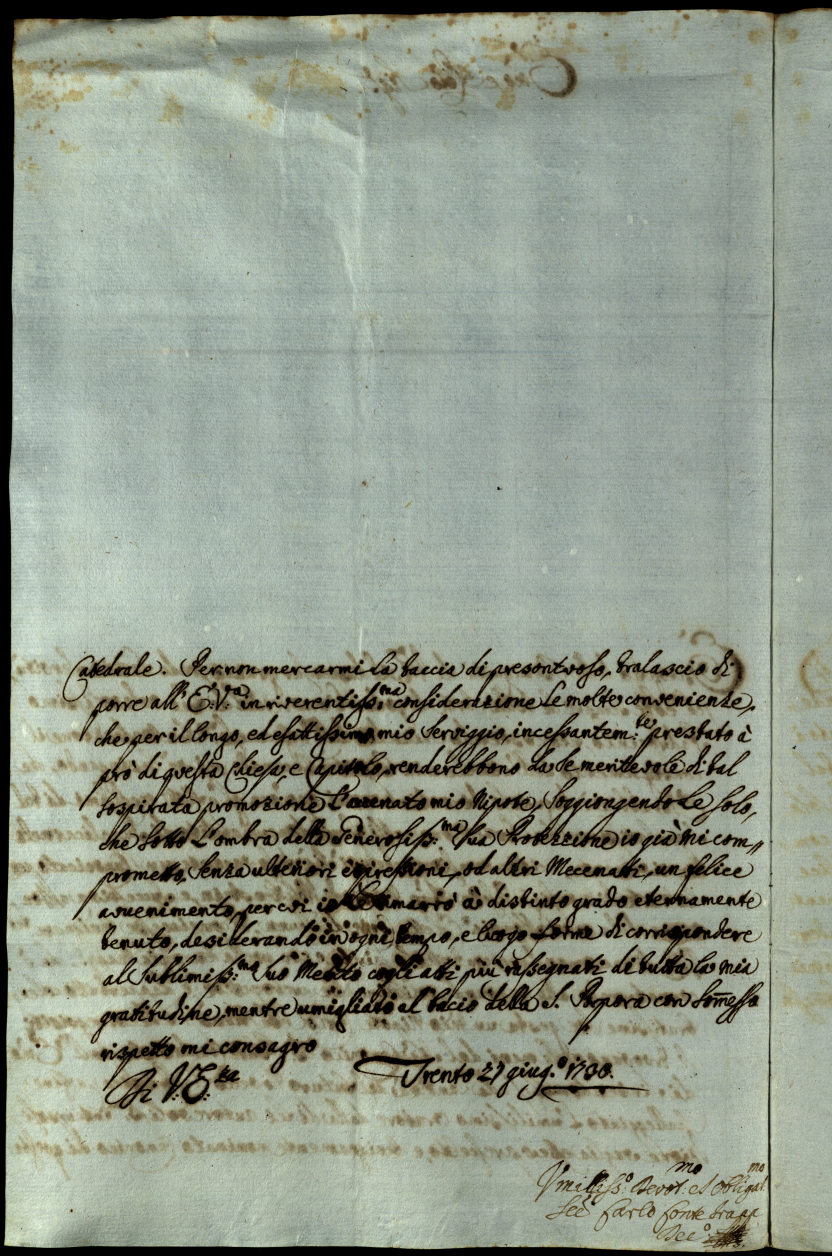 Catedrale. Per non mercarmi la taccia di presontvoso, tralascio di
porre all' E: V:ra in riverentiss:ma considerazione le molte convenienze,
che per il longo, ed esattissimo mio Serviggio, incessantem:te prestato à
prò di questa Chiesa, e Capitolo, renderebbono da se meritevole di tal
sospirata promozione l'accenato mio Nipote, Soggiongendole solo,
che sotto l'ombra della Generosiss:ma Sua Protezzione io già mi com„
prometto, senza ulteriori espressioni, od altri Mecenatti, un felice
avvenimento, per cui io Le rimarrò in distinto grado eternamente
tenuto, desiderando in ogni tempo, e luogo forme di corrispondere
al Sublimiss:mo Suo Merito cogli atti più rassegnati di tutta la mia
gratitudine, mentre umigliato al bacio della S. Porpora con somesso
rispetto mi consagro
Di V: E:za Trento 27 giug.o 1730.
Vmilliss:o Devot:mo et Obligat:mo
Carlo Conte Trapp
Dec:o